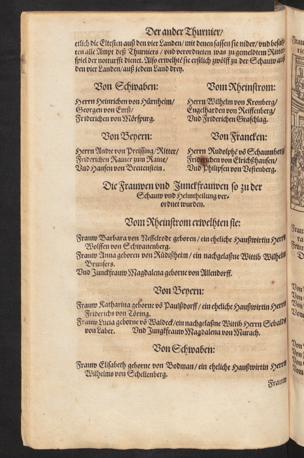 Der ander Thurnier/
etlich die Eltesten auß den vier Landen/ mit denen sassen sie nider/ vnd
ten alle Ampt deß Thurniers / vnd verordneten was zu gemeldtem Ritter
spiel der notturfft dienet. Also erwehlt sie erstlich zwölff zu der Schauw auß
den vier Landen/auß jedem Land drey.
Von Schwaben:
Herrn Heinrichen von Hürnheim/
Georgen von
Friderichen von Mörspurg.
Vom Rheinstrom:
Herrn Wilhelm von Kronberg/
Engelharden von Reiffenberg/
Vnd Friderichen Graschlag.
Von Beyern:
Herrn von Preissing/ Ritter/
Friderichen Rainer zum Raine/
Vnd Hansen von Breitenstein.
Von Francken:
Herrn Rudolphē vō Schaumberg
Friderichen von Elrichshausen/
Vnd Philipsen von Vestenberg.
Die Frauwen vnd Junckfrauwen so zu der
Schauw vnd Helmtheilung ver-
ordnet wurden.
Vom Rheinstrom erwehlten sie:
Frauw Barbara von Nesselrode geboren / ein eheliche Haußwirtin Herrn
Wolffen von Schwartzenberg.
Frauw Anna geboren von Rüdißheim/ ein nachgelaßne Wittib Wilhelm
Vnd Junckfrauw Magdalena geborne von Allendorff.
Von Beyern:
Frauw Katharina geborne vō Paulßdorff/ ein eheliche Haußwirtin Herrn
Friderichs von Töring.
Frauw Lucia geborne vō Waldeck/ein nachgelaßne Wittib Herrn Sebalds
von Laber. Vnd Jungffrauw Magdalena von Murach.
Von Schwaben:
Frauw Elisabeth geborne von Bodman/ ein eheliche Haußwirtin Herrn
Wilhelms von Schellenberg.
Frauw